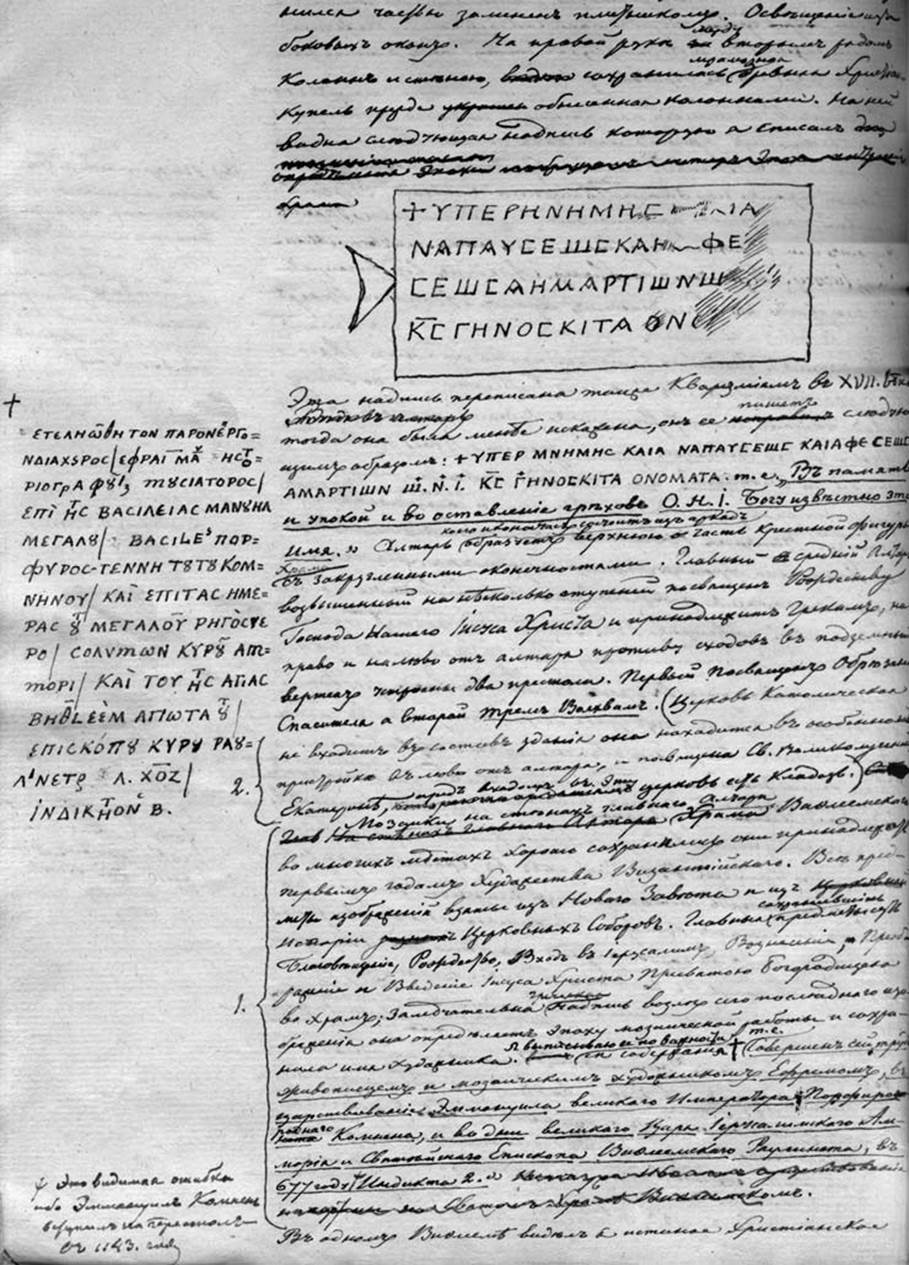 боковыхъ оконъ. На правой рукѣ между вторымъ рядомъ
колоннъ и стѣною, сохранилась мраморная древняя
купель обписанная колоннами. На ней
видна слѣдующая надпись которую я списалъ
+ ΥΠΕΡΗΝΗΜΗC ΙΑ
ΝΑΠΑΥCΕѠC ΚΑΗ ΦΕ
CΕѠCΑΗΜΑΡΤΙѠΝѠ
ΚC ΓΗΝΟCΚΙΤΑ ΟΝΟ
Эта надпись переписана также Кварезміемъ въ XVII.
тогда она была менѣе искажена, онъ ее пишетъ слѣдую
щимъ образомъ: + ΥΠΕΡ ΜΝΗΜΗC ΚΑΙΑ ΝΑΠΑΥCΕѠC ΚΑΙΑΦΕCΕѠC
ΑΜΑΡΤΙѠΝ Ѡ. Ν. Ι. ΚC ΓΗΝΟCΚΙΤΑ ΟΝΟΜΑΤΑ. т.е. Въ память
и упокой и во оставленіе грѣховъ О. Н. І. Богу извѣстно
имя. » Алтарь образуетъ верхнюю часть крестной фигуры
Храма съ закругленными оконечностями. Главный средній
возвышенный на нѣсколько ступеней посвященъ Рождеству
Господа Нашего Іисуса Христа и принадлежитъ Грекамъ, на
право и налѣво отъ алтаря противу сходовъ въ подземный
вертепъ устроены два престола. Первый посвященъ Обрѣзанію
Спасителя а второй тремъ Волхвамъ. (Церковь Католическая
не входитъ въ составъ зданія она находится въ особенной
пристройкѣ влѣво отъ алтаря, и посвящена Св. Великомученицѣ
Екатеринѣ, предъ входомъ въ эту церковь есть Кладезь.)
Мозаики на стѣнахъ главнаго Алтаря Храма Виѳлеемскаго
во многихъ мѣстахъ хорошо сохранились они принадлежатъ
первымъ годамъ Художества Византійскаго. Всѣ пред
меты изображеній взяты изъ Новаго Завѣта и изъ
исторіи Церковныхъ Соборовъ. Главные сохранившіеся предметы суть
Благовѣщеніе, Рождество, Входъ въ Іерусалимъ, Вознесеніе, и Преоб
раженіе и Введеніе Іисуса Христа Пресвятою Богородицею
во Храмъ; Замѣчательна греческая Надпись возлѣ сего послѣдняго изо
браженія она опредѣляетъ эпоху мозаической работы и сохра
нила имя художника. Я выписываю ее по важности ея содержанія + т.е. (Совершенъ сей трудъ
живописцемъ и мозаическимъ художникомъ Ефремомъ, въ
царствованіе Эммануила великаго Императора Порфиро
роднаго Комнена, и во дни великаго Царя Іерусалимскаго Ам
морія и Святѣйшаго Епископа Виѳлеемскаго Раулинета, въ
677 году Индикта 2.
Въ одномъ Виѳлеемѣ видѣлъ я истинное Христіанское
+
ΕΤΕΛΗѠΘΗ ΤΟΝ ΠΑΡΟΝ ΕΡΓΟ=
ΝΔΙΑΧȢΡΟC/ΕΦΡΑΙΜ ΜΑΧ ΗCΤΟ=
ΡΙΟΓΡΑΦΟΥ ΜȢCΙΑΤΟΡΟC/
ΕΠΙ ΤΗC ΒΑCΙΛΕΙΑC ΜΑΝȢΗΛ
ΜΕΓΑΛȢ/ ΒΑCΙLΕS ΠΟΡ=
ΦΥΡΟC-ΓΕΝΝΗΤȢ ΤȢ ΚΟΜ=
ΝΗΝΟΥ/ ΚΑΙ ΕΠΙ ΤΑC ΗΜΕ=
ΡΑC ΤȢ ΜΕΓΑΛΟΥ ΡΗΓΟC ΥΕ
ΡΟ/ CΟΛΥΜѠΝ ΚΥΡȢ ΑΜ=
ΜΟΡΙ/ ΚΑΙ ΤΟΥ ΤΗC ΑΓΙΑC
ΒΗΘLΕΕΜ ΑΓΙѠΤΑΤȢ/
ΕΠΙCΚΟΠȢ ΚΥΡȢ ΡΑȢ=
Λ'ΝΕΤȢ Λ. ΧΟΖ/
ΙΝΔΙΚΤΗΟΝ Β.
2.
1.
Это видимая ошибка
ибо Эммануилъ Комненъ
вступилъ на престолъ
въ 1143. году